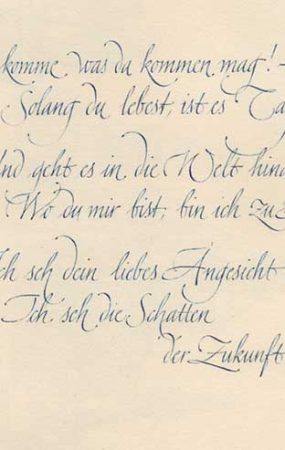 komme, was da kommen mag! –
Solang du lebest, ist es Ta
nd geht es in die Welt hina
Wo du mir bist, bin ich zu
ch seh dein liebes Angesicht
Ich seh die Schatten
der Zukunft